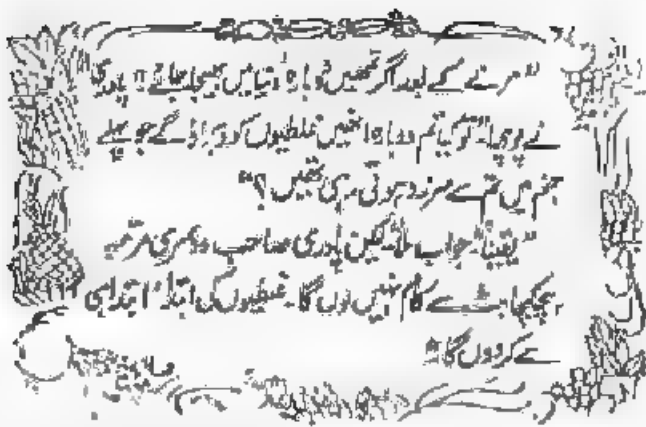 "مرنے کے بعد اگر تمھیں دوبارہ دنیا میں بھیجا جائے" پادری
نے پوچھا "تو کیا تم دوبارہ انھیں غلطیوں کو دہراؤ گے جو پہلے
جنم میں تم سے سرزد ہوتی رہی تھیں؟"
"یقیناً" جواب ملا "لیکن پادری صاحب دوسری مرتبہ
ہچکچاہٹ سے کام نہیں لوں گا۔ غلطیوں کی ابتدا ابتدا ہی
سے کردوں گا۔"